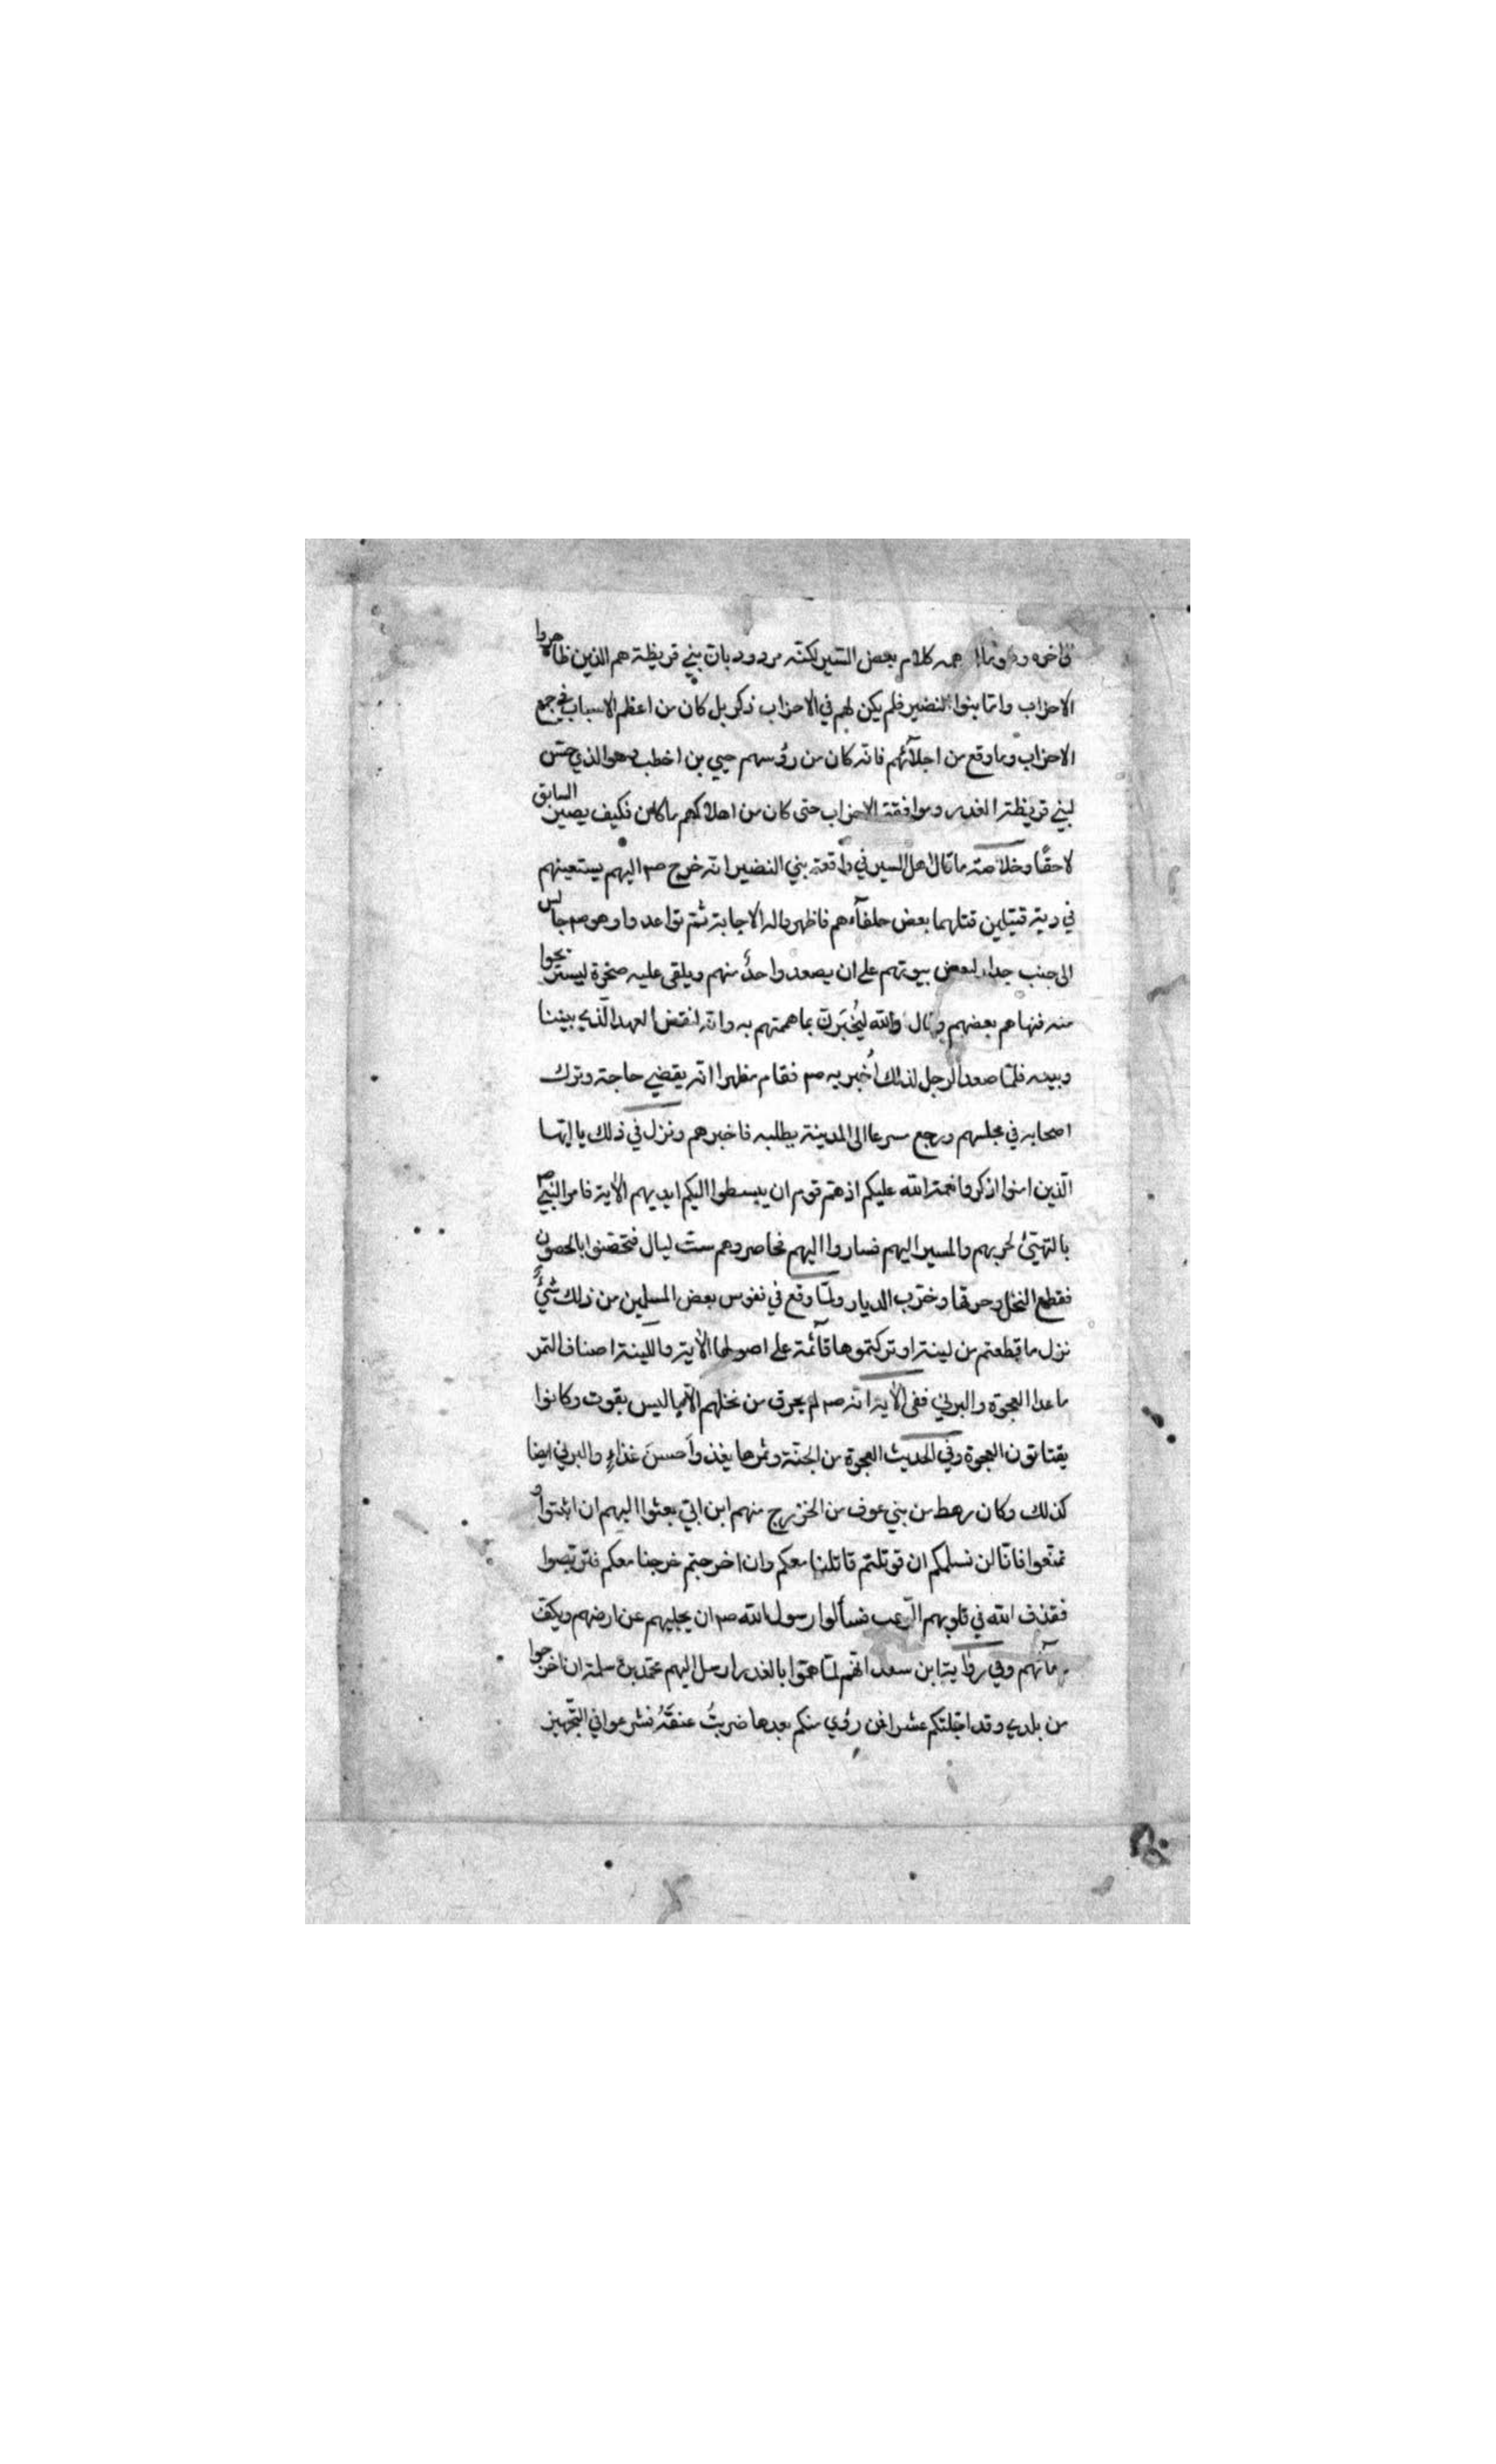 كلام بعض السير لكنه مردود بان بني قريظة هم الذين ظاهروا
الاحزاب واما بنوا النضير فلم يكن لهم في الاحزاب ذكر بل كان من اعظم الاسباب في جمع
الاحزاب وما وقع من اجلائهم فانه كان من رؤسهم حيي بن اخطب وهو الذي حسن
لبني قريظة الغدر وموافقة الاحزاب حتى كان من اهلاكهم ما كان فكيف يصير السابق
لاحقًا وخلاصة ما قال اهل السير في واقعة بني النضير انه خرج صم اليهم يستعينهم
في دية قتيلين قتلهما بعض حلفآءهم فاظهروا له الاجابة ثم تواعدوا وهو صم جالس
الى جنب جدار لبعض بيوتهم على ان يصعد واحدٌ منهم ويلقى عليه صخرة ليستريحوا
منه فنهاهم بعضهم وقال والله ليُخبَرنّ بما هممتم به وانه لنقض العهد الّذي بيننا
وبينه فلمّا صعد الرجل لذلك اُخبر به صم فقام مظهرا انه يقضي حاجة وترك
اصحابه في مجلسهم ورجع سرعا الى المدينة بطلبه فاخبرهم ونزل في ذلك يا ايّها
الّذين امنوا اذكروا نعمة الله عليكم اذ همّ قوم ان يبسطوا اليكم ايديهم الآية فامر النبيّ صم
بالتهيّئ لحربهم والمسير اليهم فساروا اليهم فحاصروهم ست ليال فتحصّنوا بالحصون
فقطع النخل وحرقها وخرّب الديار ولمّا وقع في نفوس بعض المسلمين من ذلك شيءٌ
نزل ما قطعتم من لينة او تركتموها قآئمة على اصولها الآية واللينة اصناف التمر
ماعدا العجوة والبرني ففي الآية انه صم لم يحرق من نخلهم الّا ما ليس بقوت وكانوا
يقتاتون العجوة وفي الحديث العجوة من الجنّة وثمرها يغذوا احسنَ غذاءٍ والبرني ايضا
كذلك وكان رهط من بني عوف من الخزرج منهم ابن ابيّ بعثوا اليهم ان اثبتوا و
تمنّعوا فانّا لن نسلمكم ان قوتلتم قاتلنا معكم وان اخرجتم خرجنا معكم فتربّصوا
فقذف الله في قلوبهم الرّعب فسألوا رسول الله صم ان يجليهم عن ارضهم ويكفّ
دمآئهم وفي رواية ابن سعد انّهم لمّا همّوا بالغدر ارسل اليهم محمّد بن مسلمة ان اخرجوا
من بلدي وقد اجّلتكم عشرا فمن رؤي منكم بعدها ضربتُ عنقَهُ فشرعوا في التّجهيز